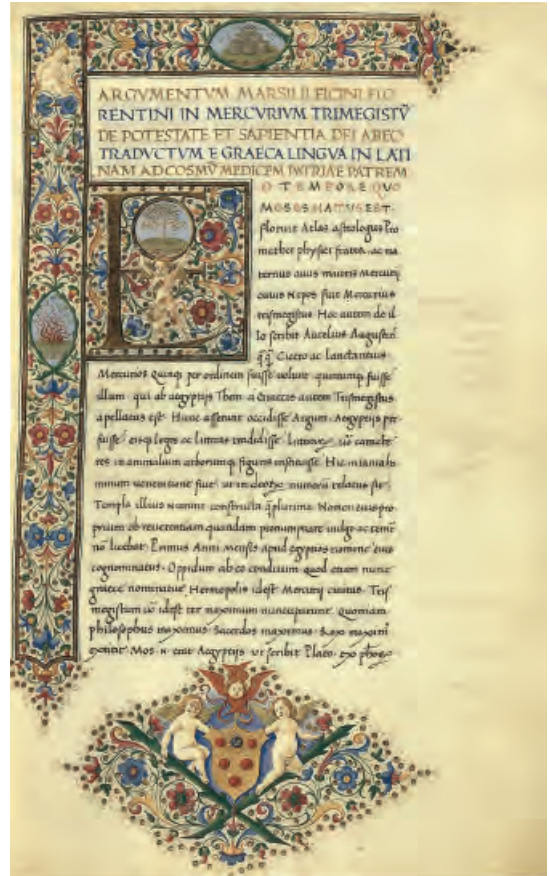 ARGVMENTVM MARSILII FICINI FLO
RENTINI IN MERCVRIVM TRIMEGISTṼ
DE POTESTATE ET SAPIENTIA DEI AB EO
TRADVCTVM E GRAECA LINGVA IN LATI
NAM AD COSMṼ MEDICEM PATRIAE PATREM
E O TEMPORE QVO
MOSES NATVS EST
floruit Atlas astrologus Pro
methei physici frater ac ma
ternus auus maioris Mercurij
cuius Nepos fuit Mercurius
trismegistus Hoc autem de il
lo scribit Aurelius Augustin̄
q̄q̄ Cicero ac Lanctantius
Mercurios Quinq; per ordinem fuisse uolunt quintumq; fuisse
illum qui ab aegyptijs Them a Graecis autem Trismegistus
apellatus est Hunc asserunt occidisse Argum Aegyptijs pre
fuisse eisq; leges ac litteras tradidisse
res in animalium arborumq; figuris instituisse Hic in tanta ho
minum ueneratione fuit ut in deorum numerum relatus sit
Templa illius numini constructa q̄plurima Nomen eius pro
prium ob reuerentiam quandam pronuntiare uulgo ac temere
nō licebat Primus Anni mensis apud egyptios nomine eius
cognominatus Oppidum ab eo conditum quod etiam nunc
graece nominatur Hermopolis idest Mercurij ciuitas Tris
megistum uō idest ter maximum nuncuparunt Quoniam
philosophus maximus Sacerdos maximus Rex maximus
extitit Mos n erat Aegyptijs ut scribit Plato ex